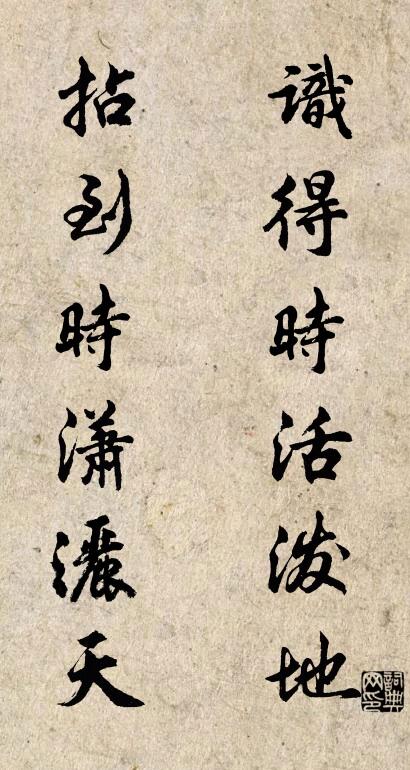 識得時活潑地
拈到時瀟灑天
詞典網印